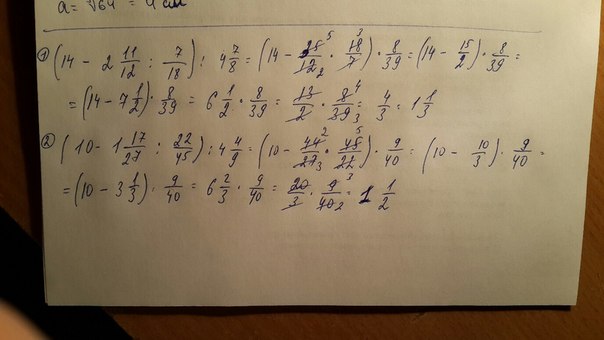 a = ∛64 = 4 см
① (14 - 2 11/12 : 7/18) : 4 7/8 = (14 - 35⁵/12₂ · 18³/7) · 8/39 = (14 - 15/2) · 8/39 =
= (14 - 7 1/2) · 8/39 = 6 1/2 · 8/39 = 13/2 · 8⁴/39₃ = 4/3 = 1 1/3
② (10 - 1 17/27 : 22/45) : 4 4/9 = (10 - 44²/27₃ · 45⁵/22) · 9/40 = (10 - 10/3) · 9/40 =
= (10 - 3 1/3) · 9/40 = 6 2/3 · 9/40 = 20/3 · 9³/40₂ = 1 1/2